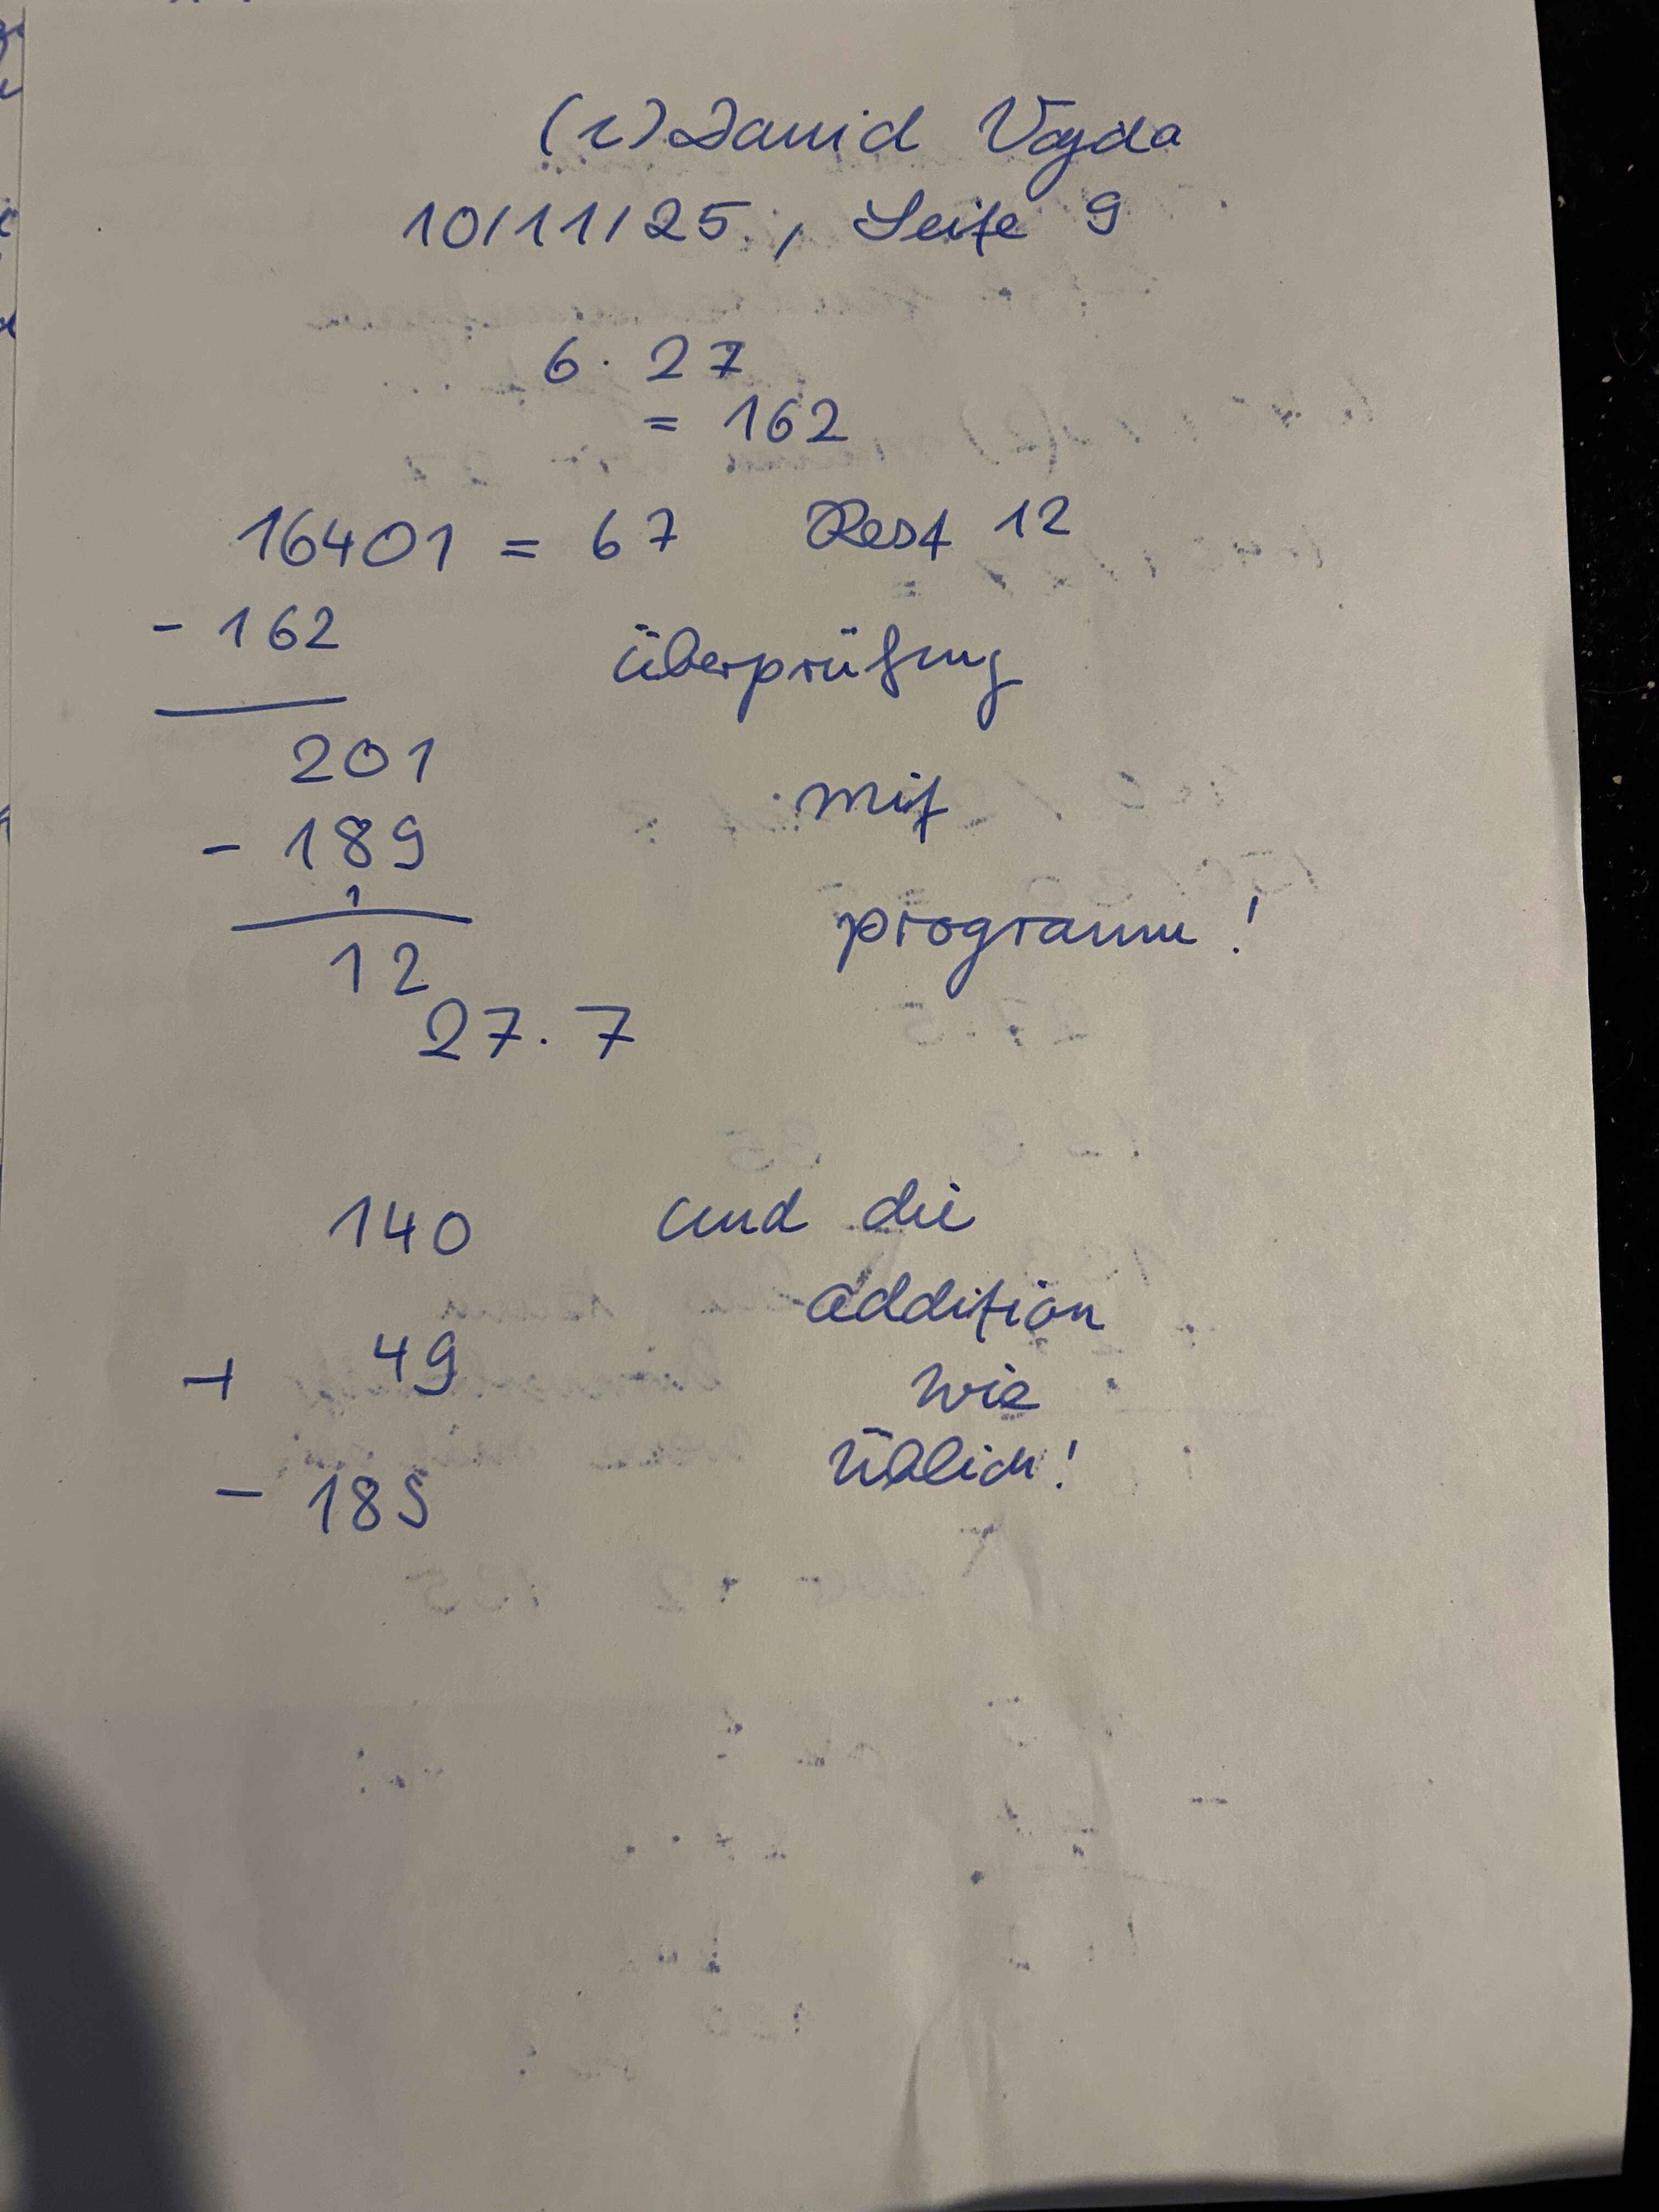 (c) David Vajda
10/11/25, Seite 9
6 · 27
= 162
16401 = 67 Rest 12
- 162
überprüfung
201
mit
- 189
1
programm!
12
27 · 7
140 und die
addition
+ 49
wie
üblich!
- 189